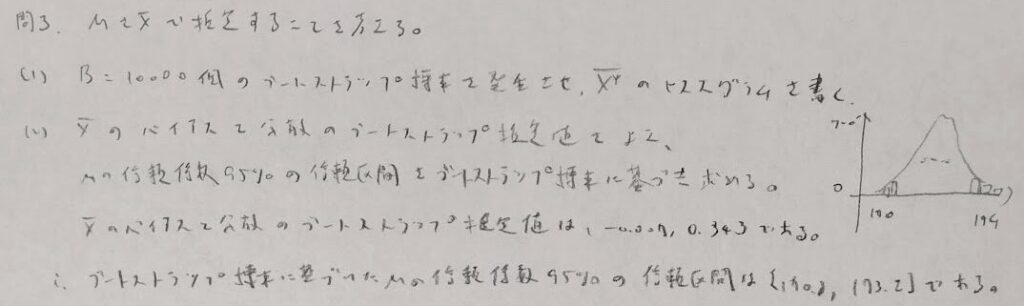 問3. μをX̄で推定することを考える。
(1) B=10000個のブートストラップ標本を発生させ, X̄*のヒストグラムを書く.
(2) X̄のバイアスと分散のブートストラップ推定値と
μの信頼係数95%の信頼区間をブートストラップ標本に基づき求める。
X̄のバイアスと分散のブートストラップ推定値は, 0.343である。
ブートストラップ標本に基づいたμの信頼係数95%の信頼区間はである。
0
190
194